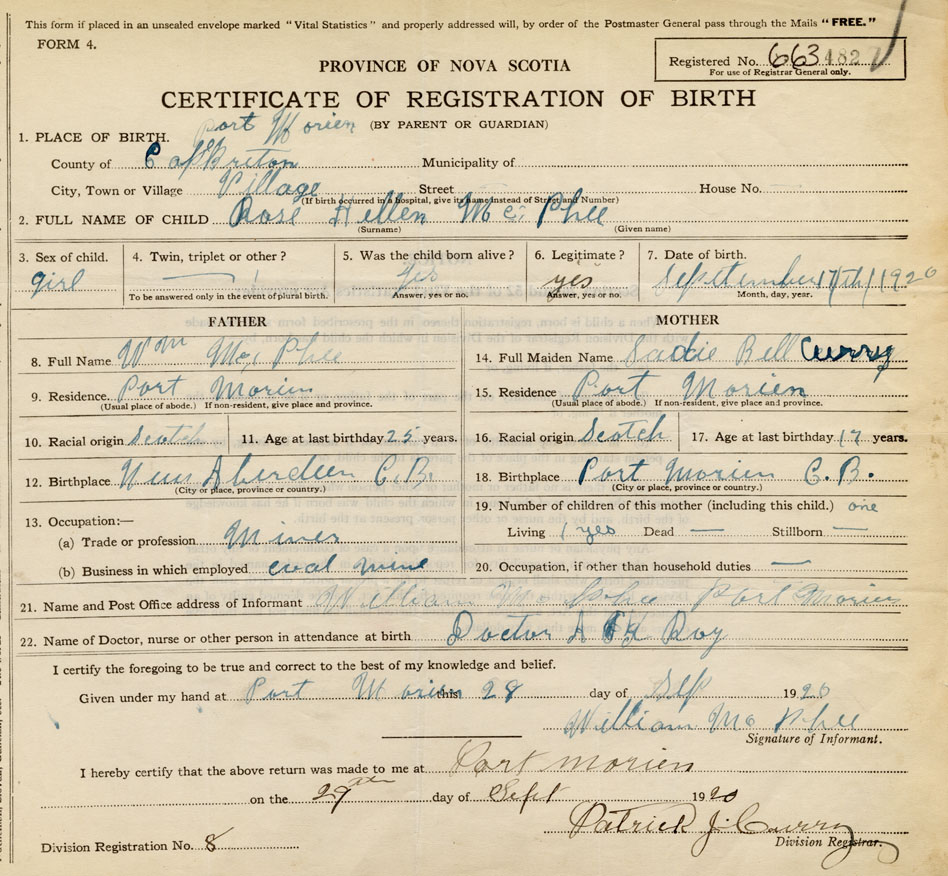 This form if placed in an unsealed envelope marked "Vital Statistics" and properly addressed will, by order of the Postmaster General pass through the Mails "FREE."
FORM 4.
Registered No. 663 4827
For use of Registrar General only.
PROVINCE OF NOVA SCOTIA
CERTIFICATE OF REGISTRATION OF BIRTH
(BY PARENT OR GUARDIAN)
1. PLACE OF BIRTH. Port Morien
County of Cap Breton Municipality of
City, Town or Village Village Street House No.
(If birth occurred in a hospital, give its name instead of Street and Number)
2. FULL NAME OF CHILD Rose Hellen Mc Phee
(Surname) (Given name)
3. Sex of child. 4. Twin, triplet or other? 5. Was the child born alive? 6. Legitimate? 7. Date of birth.
girl — yes yes September 17th 1920
To be answered only in the event of plural birth. Answer, yes or no. Answer, yes or no. Month, day, year.
FATHER MOTHER
8. Full Name Wm Mc Phee 14. Full Maiden Name Sadie Bell Curry
9. Residence. Port Morien 15. Residence Port Morien
(Usual place of abode.) If non-resident, give place and province. (Usual place of abode.) If non-resident, give place and province.
10. Racial origin Scotch 11. Age at last birthday 25 years. 16. Racial origin Scotch 17. Age at last birthday 17 years.
12. Birthplace New Aberdeen C.B. 18. Birthplace Port Morien C.B.
(City or place, province or country.) (City or place, province or country.)
13. Occupation:— 19. Number of children of this mother (including this child.) one
(a) Trade or profession Miner Living yes Dead — Stillborn —
(b) Business in which employed coal mine 20. Occupation, if other than household duties —
21. Name and Post Office address of Informant William Mc Phee Port Morien
22. Name of Doctor, nurse or other person in attendance at birth Doctor A Roy
I certify the foregoing to be true and correct to the best of my knowledge and belief.
Given under my hand at Port Morien this 28 day of Sep 1920
William Mc Phee
Signature of Informant.
I hereby certify that the above return was made to me at Port Morien
on the 29th day of Sept 1920
Patrick J. Curry
Division Registration No. 8 Division Registrar.